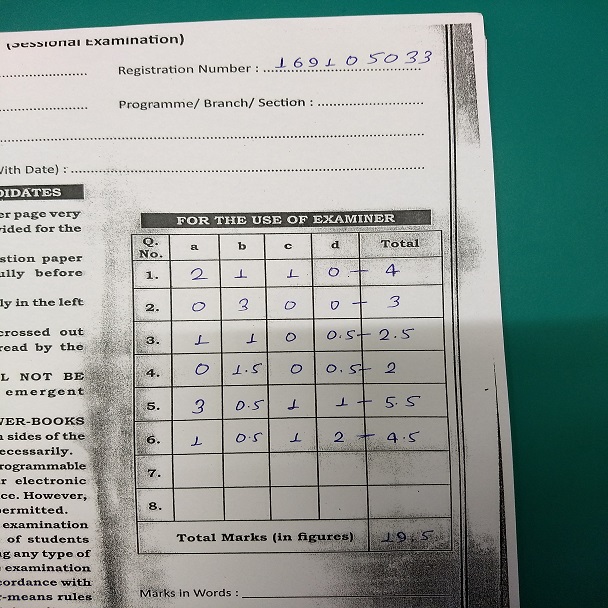 (Sessional Examination)
Registration Number : 169105033
Programme/ Branch/ Section :
With Date) :
DIDATES
er page very
vided for the
stion paper
ully before
ly in the left
crossed out
read by the
L NOT BE
emergent
WER-BOOKS
n sides of the
ecessarily.
rogrammable
r electronic
ce. However,
permitted.
examination
of students
ng any type of
examination
cordance with
r-means rules
FOR THE USE OF EXAMINER
Q. No. a b c d Total
1. 2 1 1 0 - 4
2. 0 3 0 0 - 3
3. 1 1 0 0.5 - 2.5
4. 0 1.5 0 0.5 - 2
5. 3 0.5 1 1 - 5.5
6. 1 0.5 1 2 - 4.5
7.
8.
Total Marks (in figures) 19.5
Marks in Words :